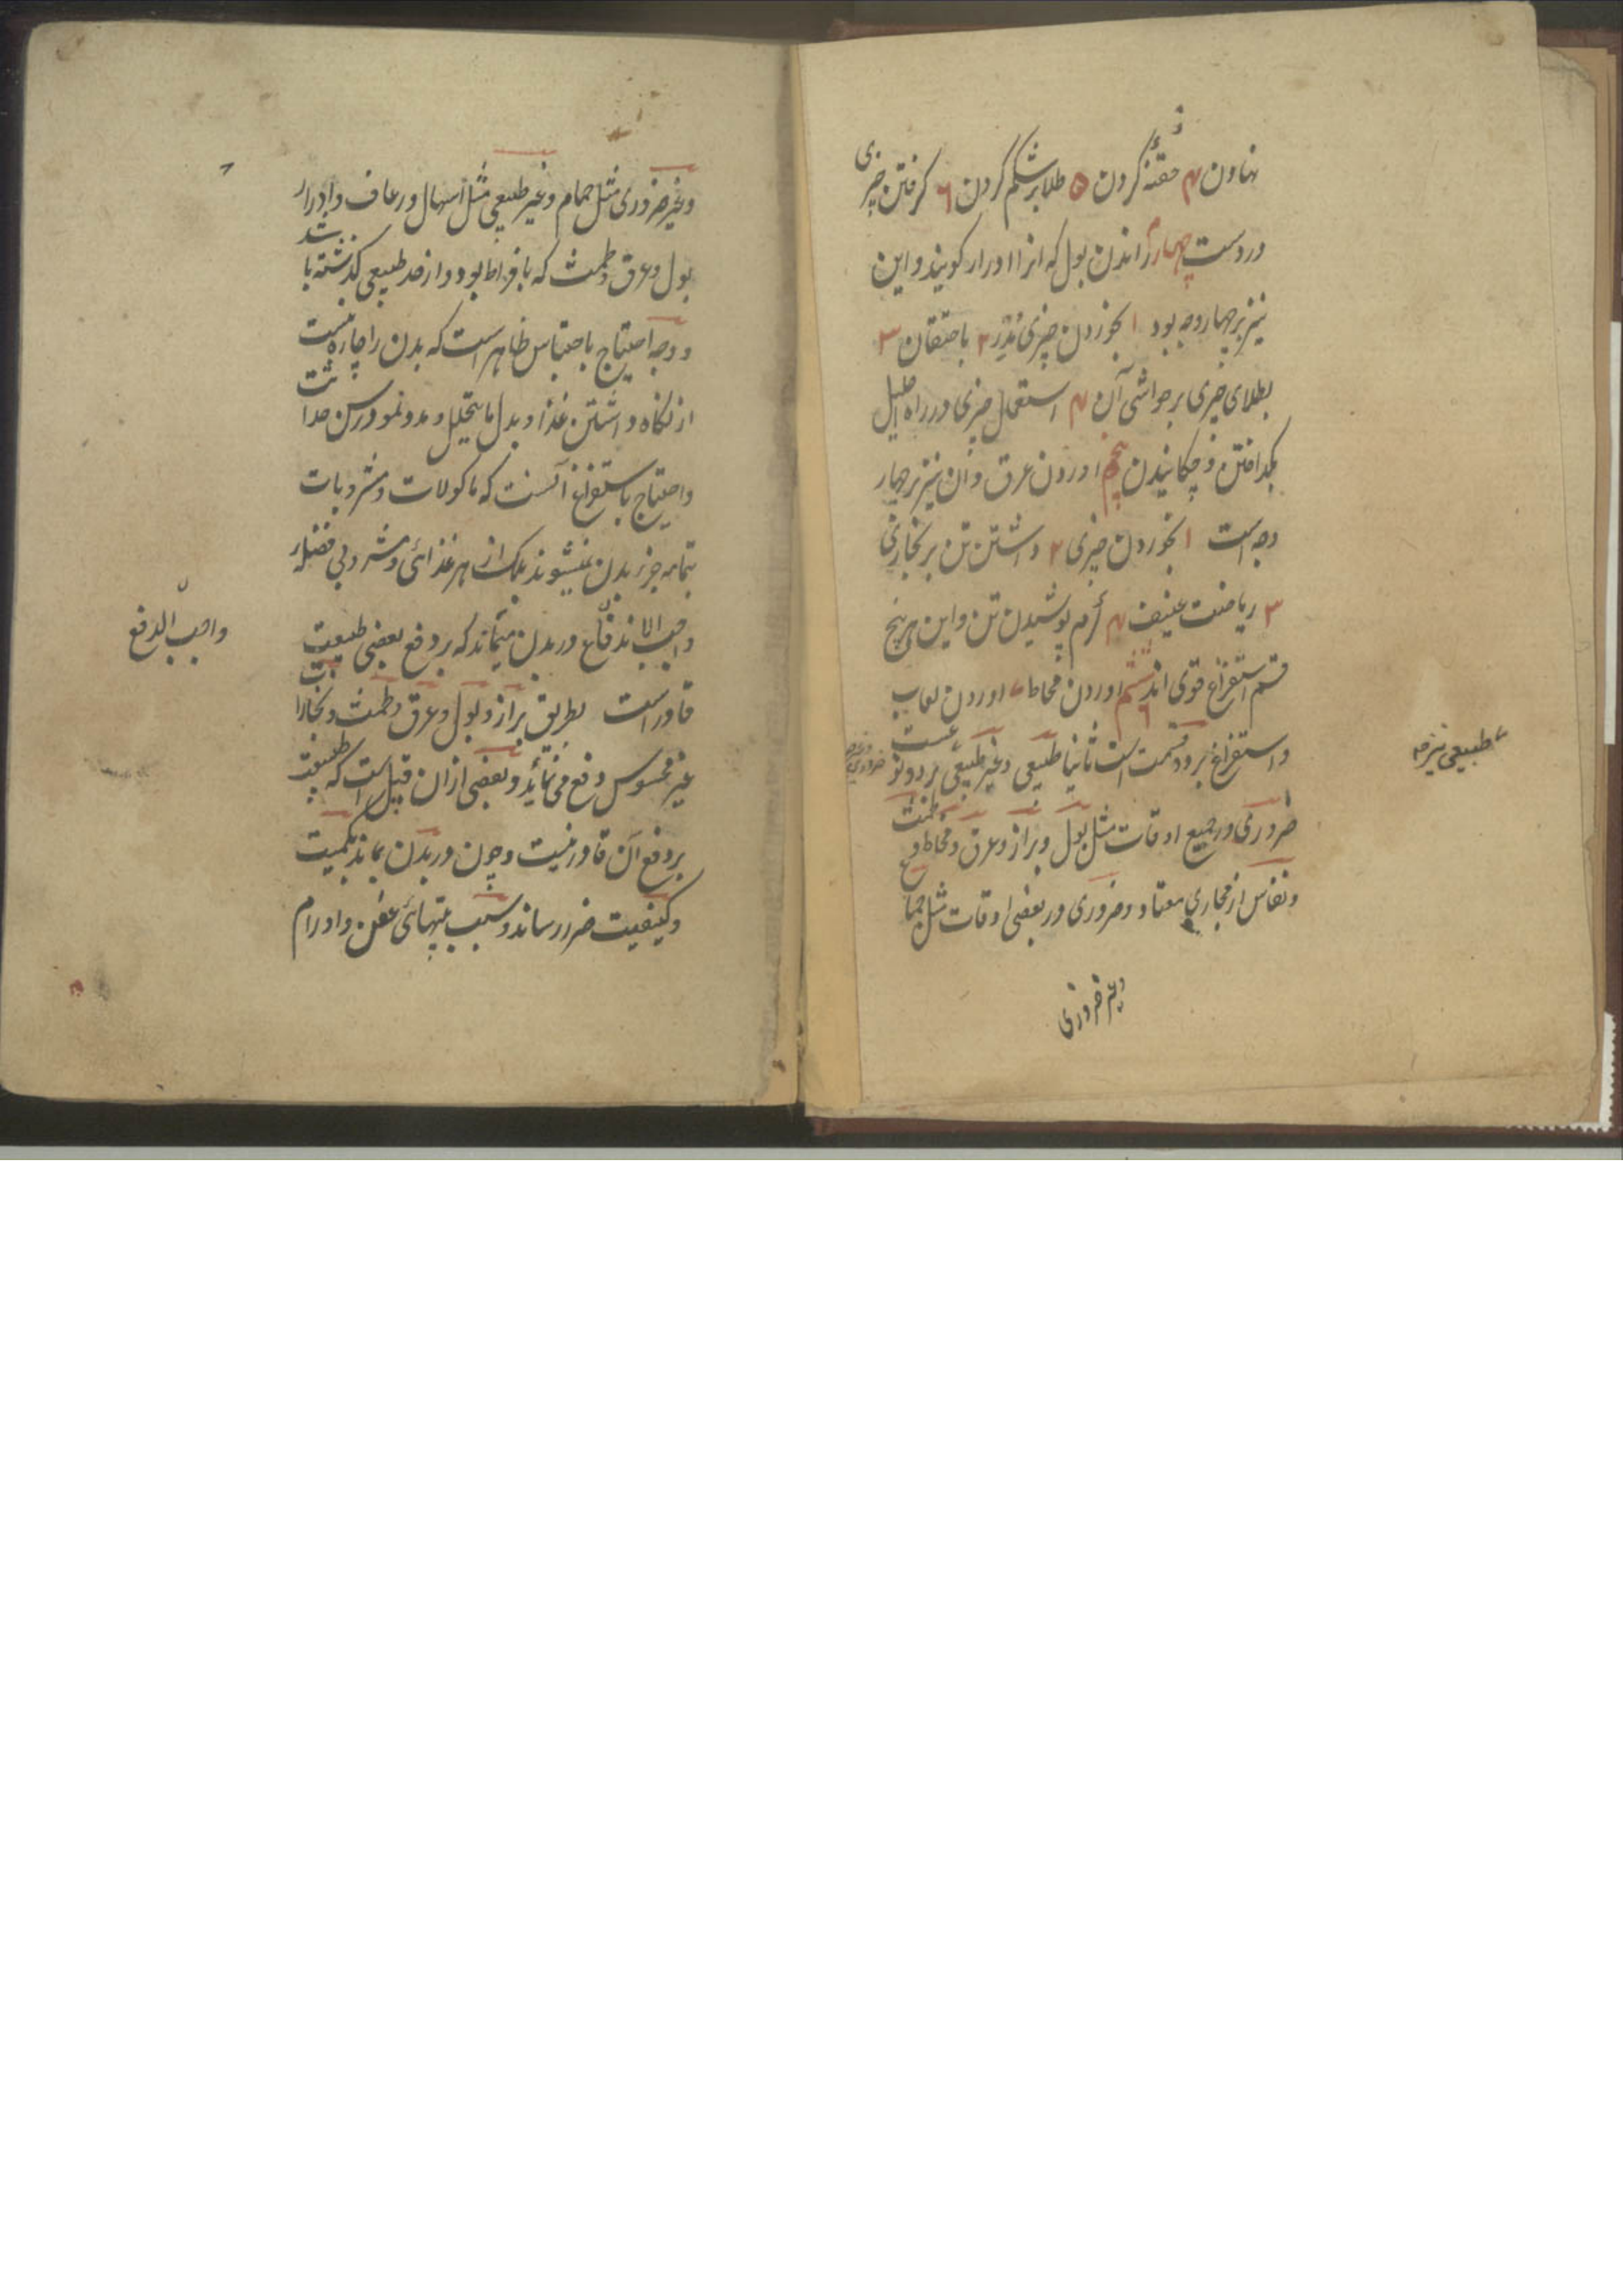 نهاون ۴ حقنه کردن ۵ طلا بر شکم کردن ۶ کرفتن چیزی
در دست چهارم راندن بول که انرا ادرار کویند و این
نیز بر چهار وجه بود ۱ بخوردن چیزی مدر ۲ باحتقان ۳
بطلای چیزی بر حواشی آن ۴ استعمال چیزی در راه احلیل
بکداختن و چکانیدن پنجم اوردن عرق و آن نیز بر چهار
وجه است ۱ بخوردن چیزی ۲ داشتن تن بر بخاری
۳ ریاضت عنیف ۴ گرم پوشیدن تن و این هر پنج
قسم استفراغ قوی اند ششم اوردن مخاط ۷ اوردن لعاب
و استفراغ بر دو قسمت است ثانیا طبیعی و غیر طبیعی
ضروری در جمیع اوقات مثل بول و براز و عرق و مخاط و طمث
و نفاس از مجاری معتاد و ضروری در بعضی اوقات مثل جماع
و غیر ضروری
طبیعی نیز
و غیر ضروری مثل حمام و غیر طبیعی مثل اسهال و رعاف و ادرار
بول و عرق و طمث که بافراط بود و از حد طبیعی کذشته باشد
و وجه احتیاج باحتباس ظاهر است که بدن را چاره نیست
از نکاه داشتن غذا و بدل ما یتحلل و مد و نمو در سن حداثت
و احتیاج باستفراغ آنست که ماکولات و مشروبات
بتمامه جزء بدن نمیشوند بلک از هر غذائی و مشروبی فضله
واجب الاندفاع در بدن میماند که بر دفع بعضی طبیعت
قادر است بطریق براز و بول و عرق و طمث و بخارات
غیر محسوس دفع می نماید و بعضی ازان قبیل است که طبیعت
بر دفع آن قادر نیست و چون در بدن بماند بکمیت
و کیفیت ضرر رساند و سبب تبهائی عفن و اورام
واجب الدفع